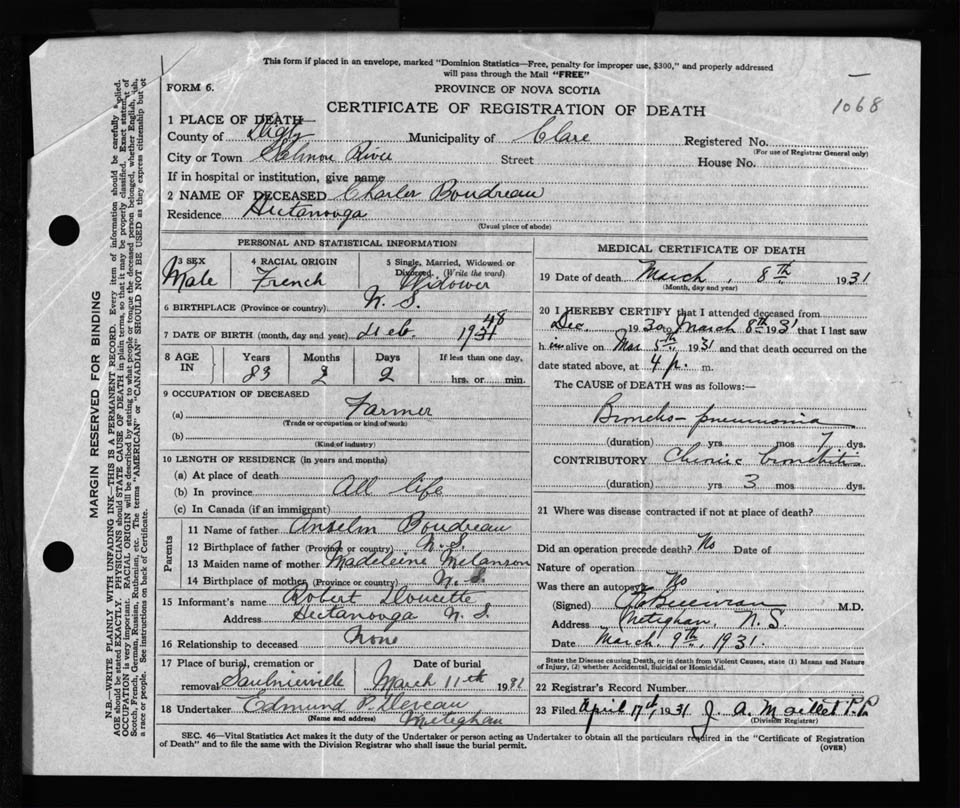 This form if placed in an envelope, marked "Dominion Statistics—Free, penalty for improper use, $300," and properly addressed
will pass through the Mail "FREE"
FORM 6.
PROVINCE OF NOVA SCOTIA
1068
CERTIFICATE OF REGISTRATION OF DEATH
1 PLACE OF DEATH—
County of Digby Municipality of Clare Registered No.
(For use of Registrar General only)
City or Town Salmon River Street House No.
If in hospital or institution, give name
2 NAME OF DECEASED Charles Boudreau
Residence Hectanooga
(Usual place of abode)
PERSONAL AND STATISTICAL INFORMATION
3 SEX 4 RACIAL ORIGIN 5 Single, Married, Widowed or
Divorced. (Write the word)
Male French Widower
6 BIRTHPLACE (Province or country) N. S.
7 DATE OF BIRTH (month, day and year)
8 AGE IN Years Months Days If less than one day,
83 2 2 hrs. or min.
9 OCCUPATION OF DECEASED
(a) Farmer
(Trade or occupation or kind of work)
(b)
(Kind of industry)
10 LENGTH OF RESIDENCE (in years and months)
(a) At place of death
(b) In province All life
(c) In Canada (if an immigrant)
Parents
11 Name of father Anselm Boudreau
12 Birthplace of father (Province or country) N. S.
13 Maiden name of mother Madeleine Melanson
14 Birthplace of mother (Province or country) N. S.
15 Informant's name Robert Doucette
Address Hectanooga N. S.
16 Relationship to deceased None
17 Place of burial, cremation or Date of burial
removal Saulnierville March 11th 1931
18 Undertaker Edmund P. Deveau
(Name and address) Meteghan
MEDICAL CERTIFICATE OF DEATH
19 Date of death March, 8th 1931
(Month, day and year)
20 I HEREBY CERTIFY that I attended deceased from
Dec. 1930 to March 8th 1931 that I last saw
him alive on Mar 5th 1931 and that death occurred on the
date stated above, at 4 p. m.
The CAUSE OF DEATH was as follows:—
Broncho-pneumonia
(duration) yrs mos 7 dys.
CONTRIBUTORY Chronic bronchitis
(duration) yrs 3 mos dys.
21 Where was disease contracted if not at place of death?
Did an operation precede death? No Date of
Nature of operation
Was there an autopsy No
(Signed) M.D.
Address Meteghan, N. S.
Date March 9th, 1931.
State the Disease causing Death, or in death from Violent Causes, state (1) Means and Nature
of Injury, (2) whether Accidental, Suicidal or Homicidal.
22 Registrar's Record Number
23 Filed April 17th, 1931 J. A. Maillet P.P.
(Division Registrar)
SEC. 46—Vital Statistics Act makes it the duty of the Undertaker or person acting as Undertaker to obtain all the particulars required in the "Certificate of Registration
of Death" and to file the same with the Division Registrar who shall issue the burial permit.
(OVER)
MARGIN RESERVED FOR BINDING
N.B.—WRITE PLAINLY WITH UNFADING INK—THIS IS A PERMANENT RECORD. Every item of information should be carefully supplied.
AGE should be stated EXACTLY. PHYSICIANS should STATE CAUSE OF DEATH in plain terms, so that it may be properly classified. Exact statement of
OCCUPATION is very important. RACIAL ORIGIN will be described by stating to what people or tongue the deceased person belonged, whether English, Irish,
Scotch, French, German, Russian, Ruthenian, etc. The terms "AMERICAN" or "CANADIAN" SHOULD NOT BE USED as they express citizenship but not
a race or people. See instructions on back of Certificate.